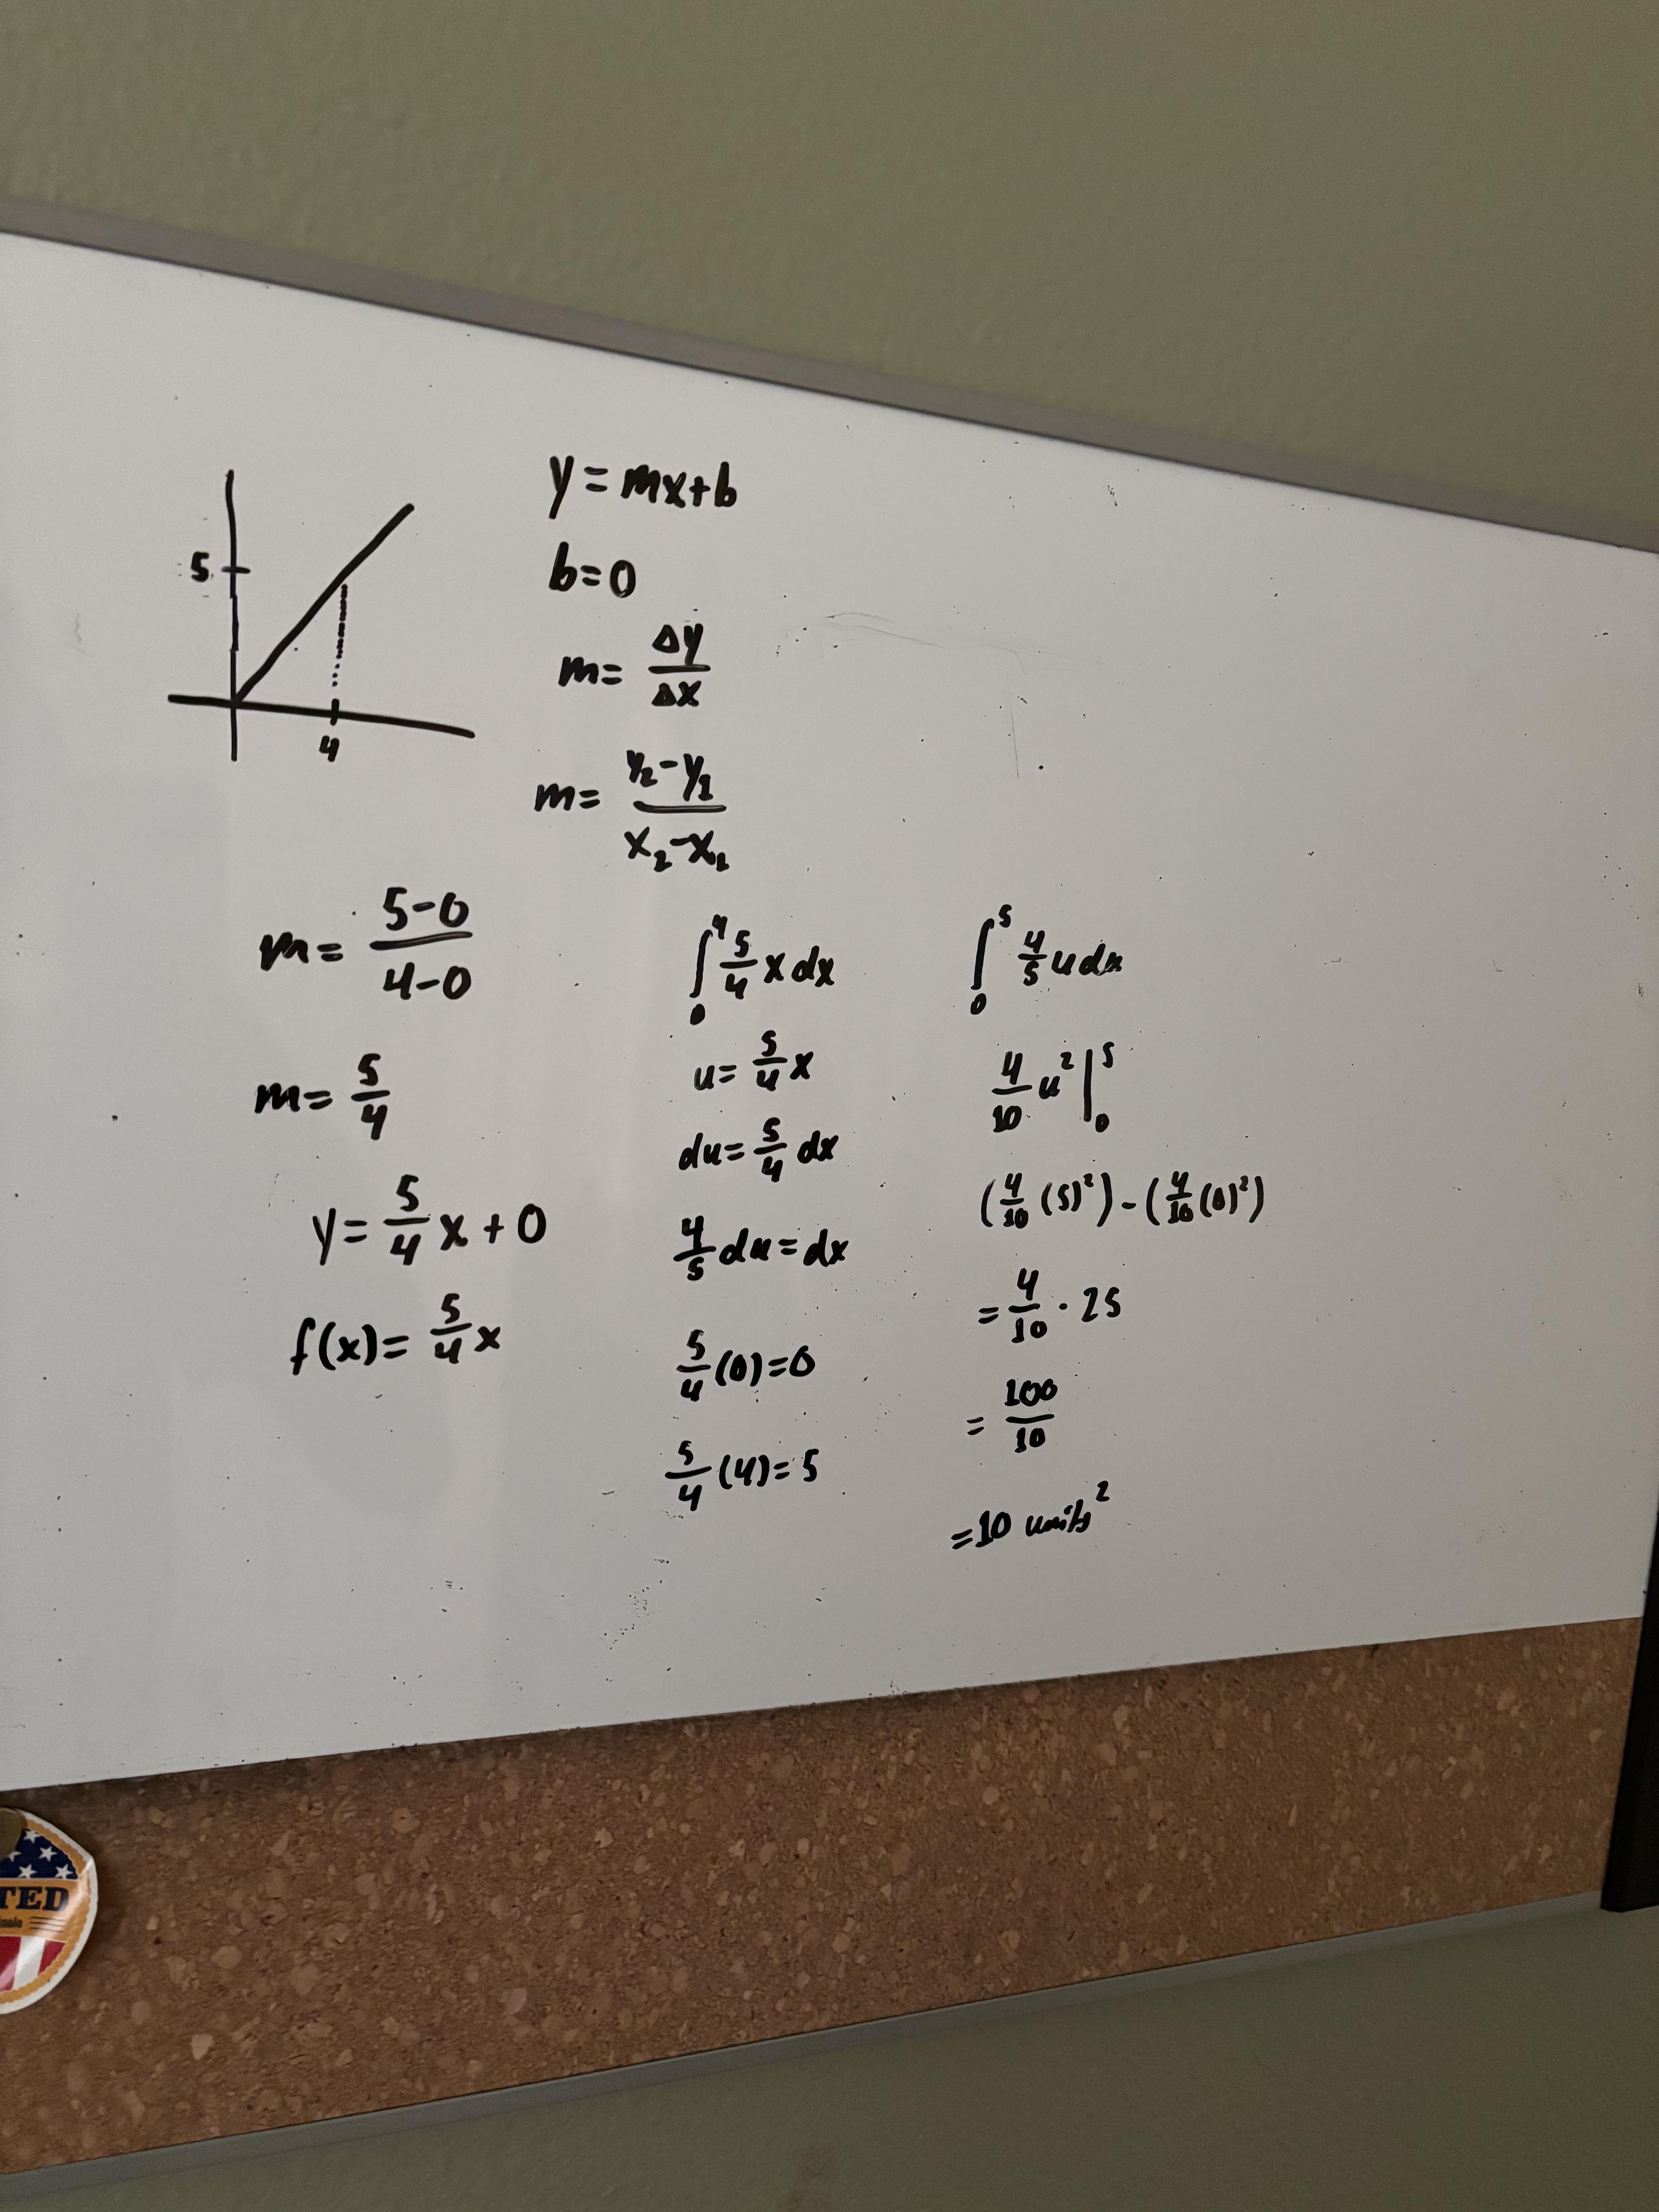 5
4
y = mx+b
b=0
m= Δy/Δx
m= (y₂-y₁)/(x₂-x₁)
m= (5-0)/(4-0)
m= 5/4
y= 5/4 x + 0
f(x)= 5/4 x
∫₀⁴ 5/4 x dx
u= 5/4 x
du= 5/4 dx
4/5 du = dx
5/4 (0)=0
5/4 (4)=5
∫₀⁵ 4/5 u du
4/10 u² |₀⁵
(4/10 (5)²) - (4/10 (0)²)
= 4/10 · 25
= 100/10
=10 units²
TED